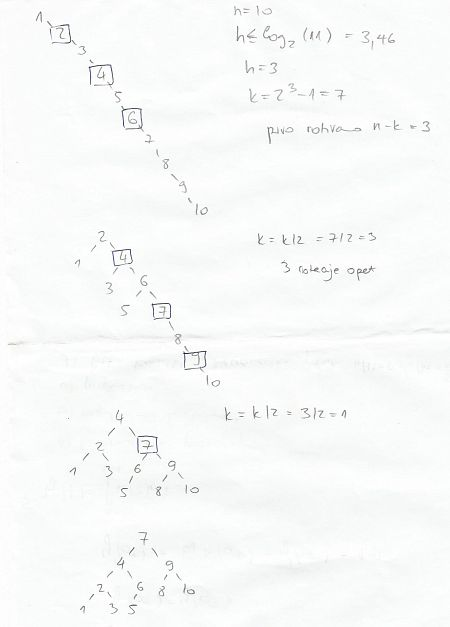 1
2
3
4
5
6
7
8
9
10
n=10
h≤log₂(11) = 3,46
h=3
k=2³-1=7
prvo n-k=3
2
1 4
3 6
5 7
8
9
10
k=k/2 = 7/2=3
3 rotacije opet
4
2 7
1 3 6 9
5 8 10
k=k/2=3/2=1
7
4 9
2 6 8 10
1 3 5